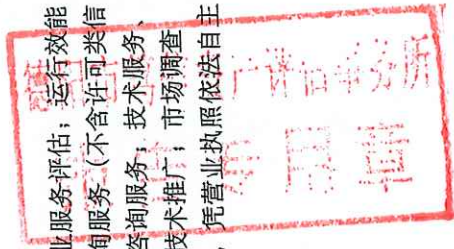 业服务评估；运行效能
询服务（不含许可类信
咨询服务；技术服务、
技术推广；市场调查
，凭营业执照依法自主
评估事务所